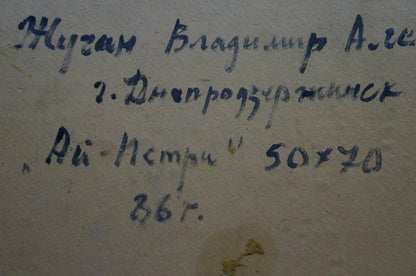 Жучан Владимир Але
г. Днепродзержинск
„Ай-Петри" 50×70
86г.